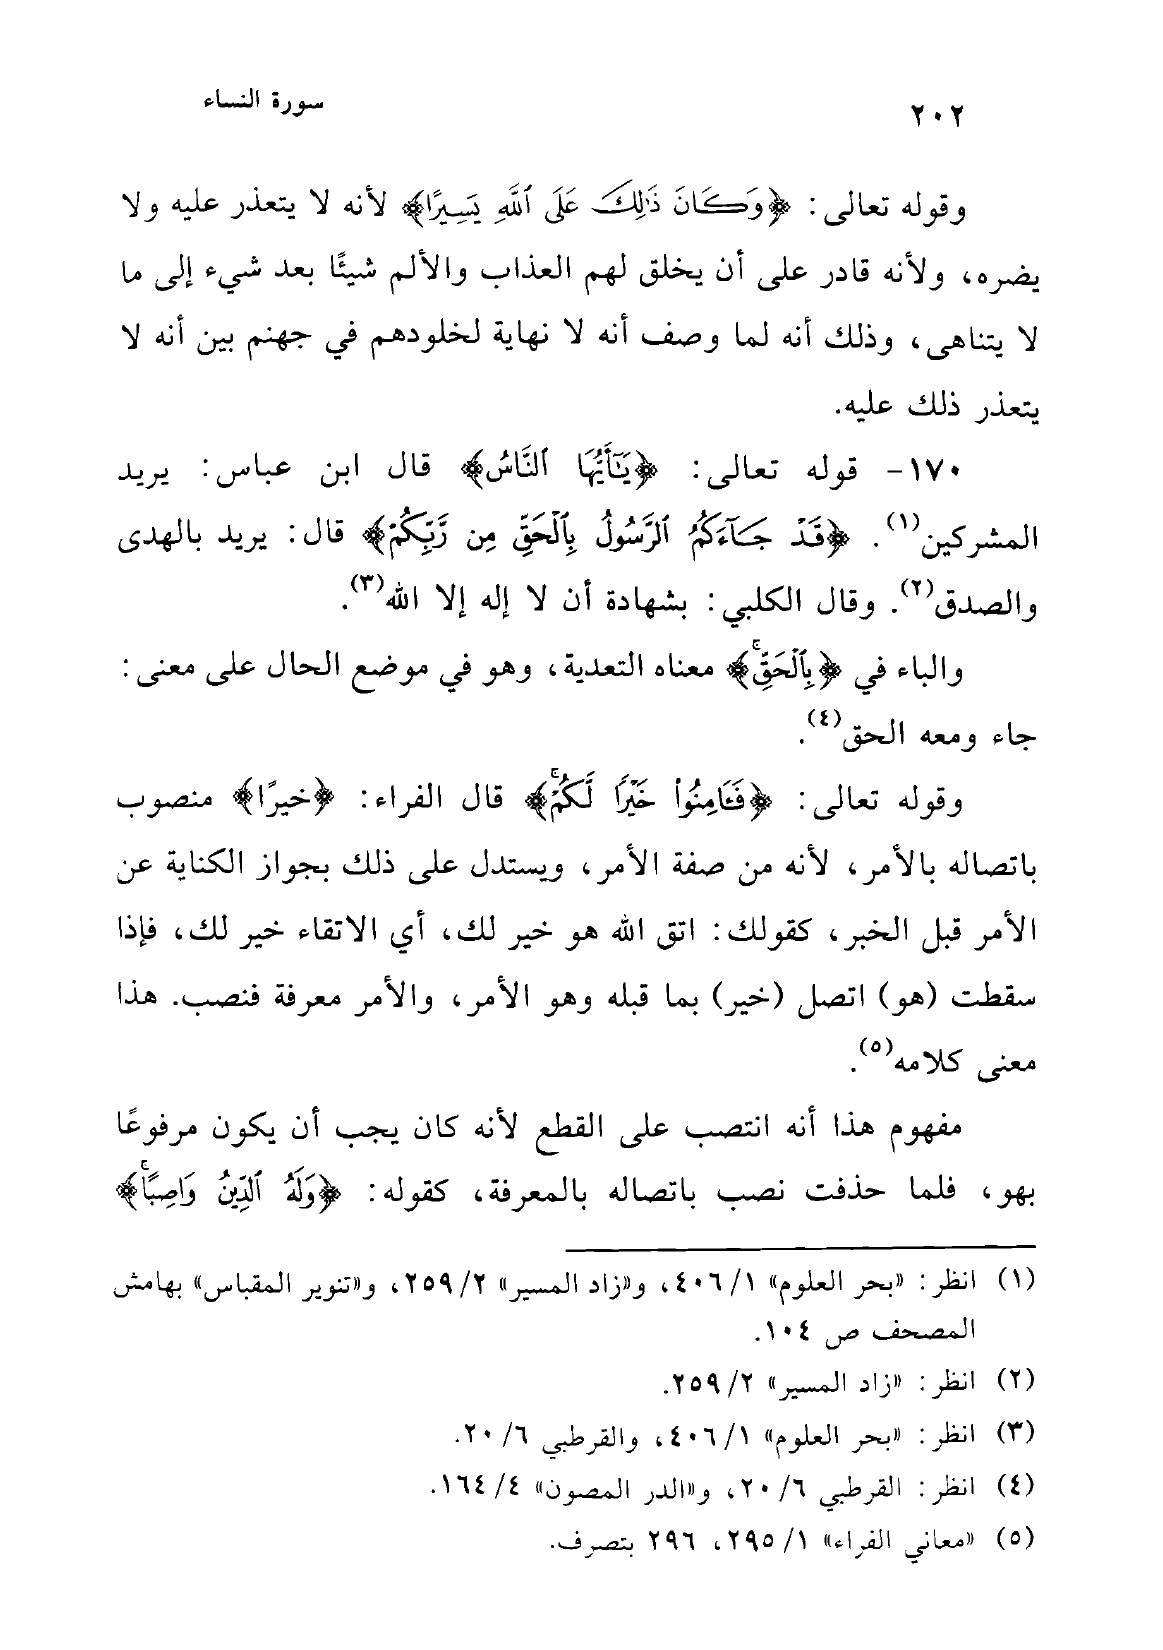 ٢٠٢
سورة النساء
وقوله تعالى: ﴿وَكَانَ ذَٰلِكَ عَلَى ٱللَّهِ يَسِيرًا﴾ لأنه لا يتعذر عليه ولا
يضره، ولأنه قادر على أن يخلق لهم العذاب والألم شيئًا بعد شيء إلى ما
لا يتناهى، وذلك أنه لما وصف أنه لا نهاية لخلودهم في جهنم بين أنه لا
يتعذر ذلك عليه.
١٧٠- قوله تعالى: ﴿يَٰٓأَيُّهَا ٱلنَّاسُ﴾ قال ابن عباس: يريد
المشركين(١). ﴿قَدْ جَآءَكُمُ ٱلرَّسُولُ بِٱلْحَقِّ مِن رَّبِّكُمْ﴾ قال: يريد بالهدى
والصدق(٢). وقال الكلبي: بشهادة أن لا إله إلا الله(٣).
والباء في ﴿بِٱلْحَقِّ ۚ﴾ معناه التعدية، وهو في موضع الحال على معنى:
جاء ومعه الحق(٤).
وقوله تعالى: ﴿فَـَٔامِنُوا۟ خَيْرًا لَّكُمْ ۚ﴾ قال الفراء: ﴿خيرًا﴾ منصوب
باتصاله بالأمر، لأنه من صفة الأمر، ويستدل على ذلك بجواز الكناية عن
الأمر قبل الخبر، كقولك: اتق الله هو خير لك، أي الاتقاء خير لك، فإذا
سقطت (هو) اتصل (خير) بما قبله وهو الأمر، والأمر معرفة فنصب. هذا
معنى كلامه(٥).
مفهوم هذا أنه انتصب على القطع لأنه كان يجب أن يكون مرفوعًا
بهو، فلما حذفت نصب باتصاله بالمعرفة، كقوله: ﴿وَلَهُ ٱلدِّينُ وَاصِبًا ۚ﴾
(١) انظر: «بحر العلوم» ١/ ٤٠٦، و«زاد المسير» ٢/ ٢٥٩، و«تنوير المقباس» بهامش
المصحف ص ١٠٤.
(٢) انظر: «زاد المسير» ٢/ ٢٥٩.
(٣) انظر: «بحر العلوم» ١/ ٤٠٦، والقرطبي ٦/ ٢٠.
(٤) انظر: القرطبي ٦/ ٢٠، و«الدر المصون» ٤/ ١٦٤.
(٥) «معاني الفراء» ١/ ٢٩٥، ٢٩٦ بتصرف.